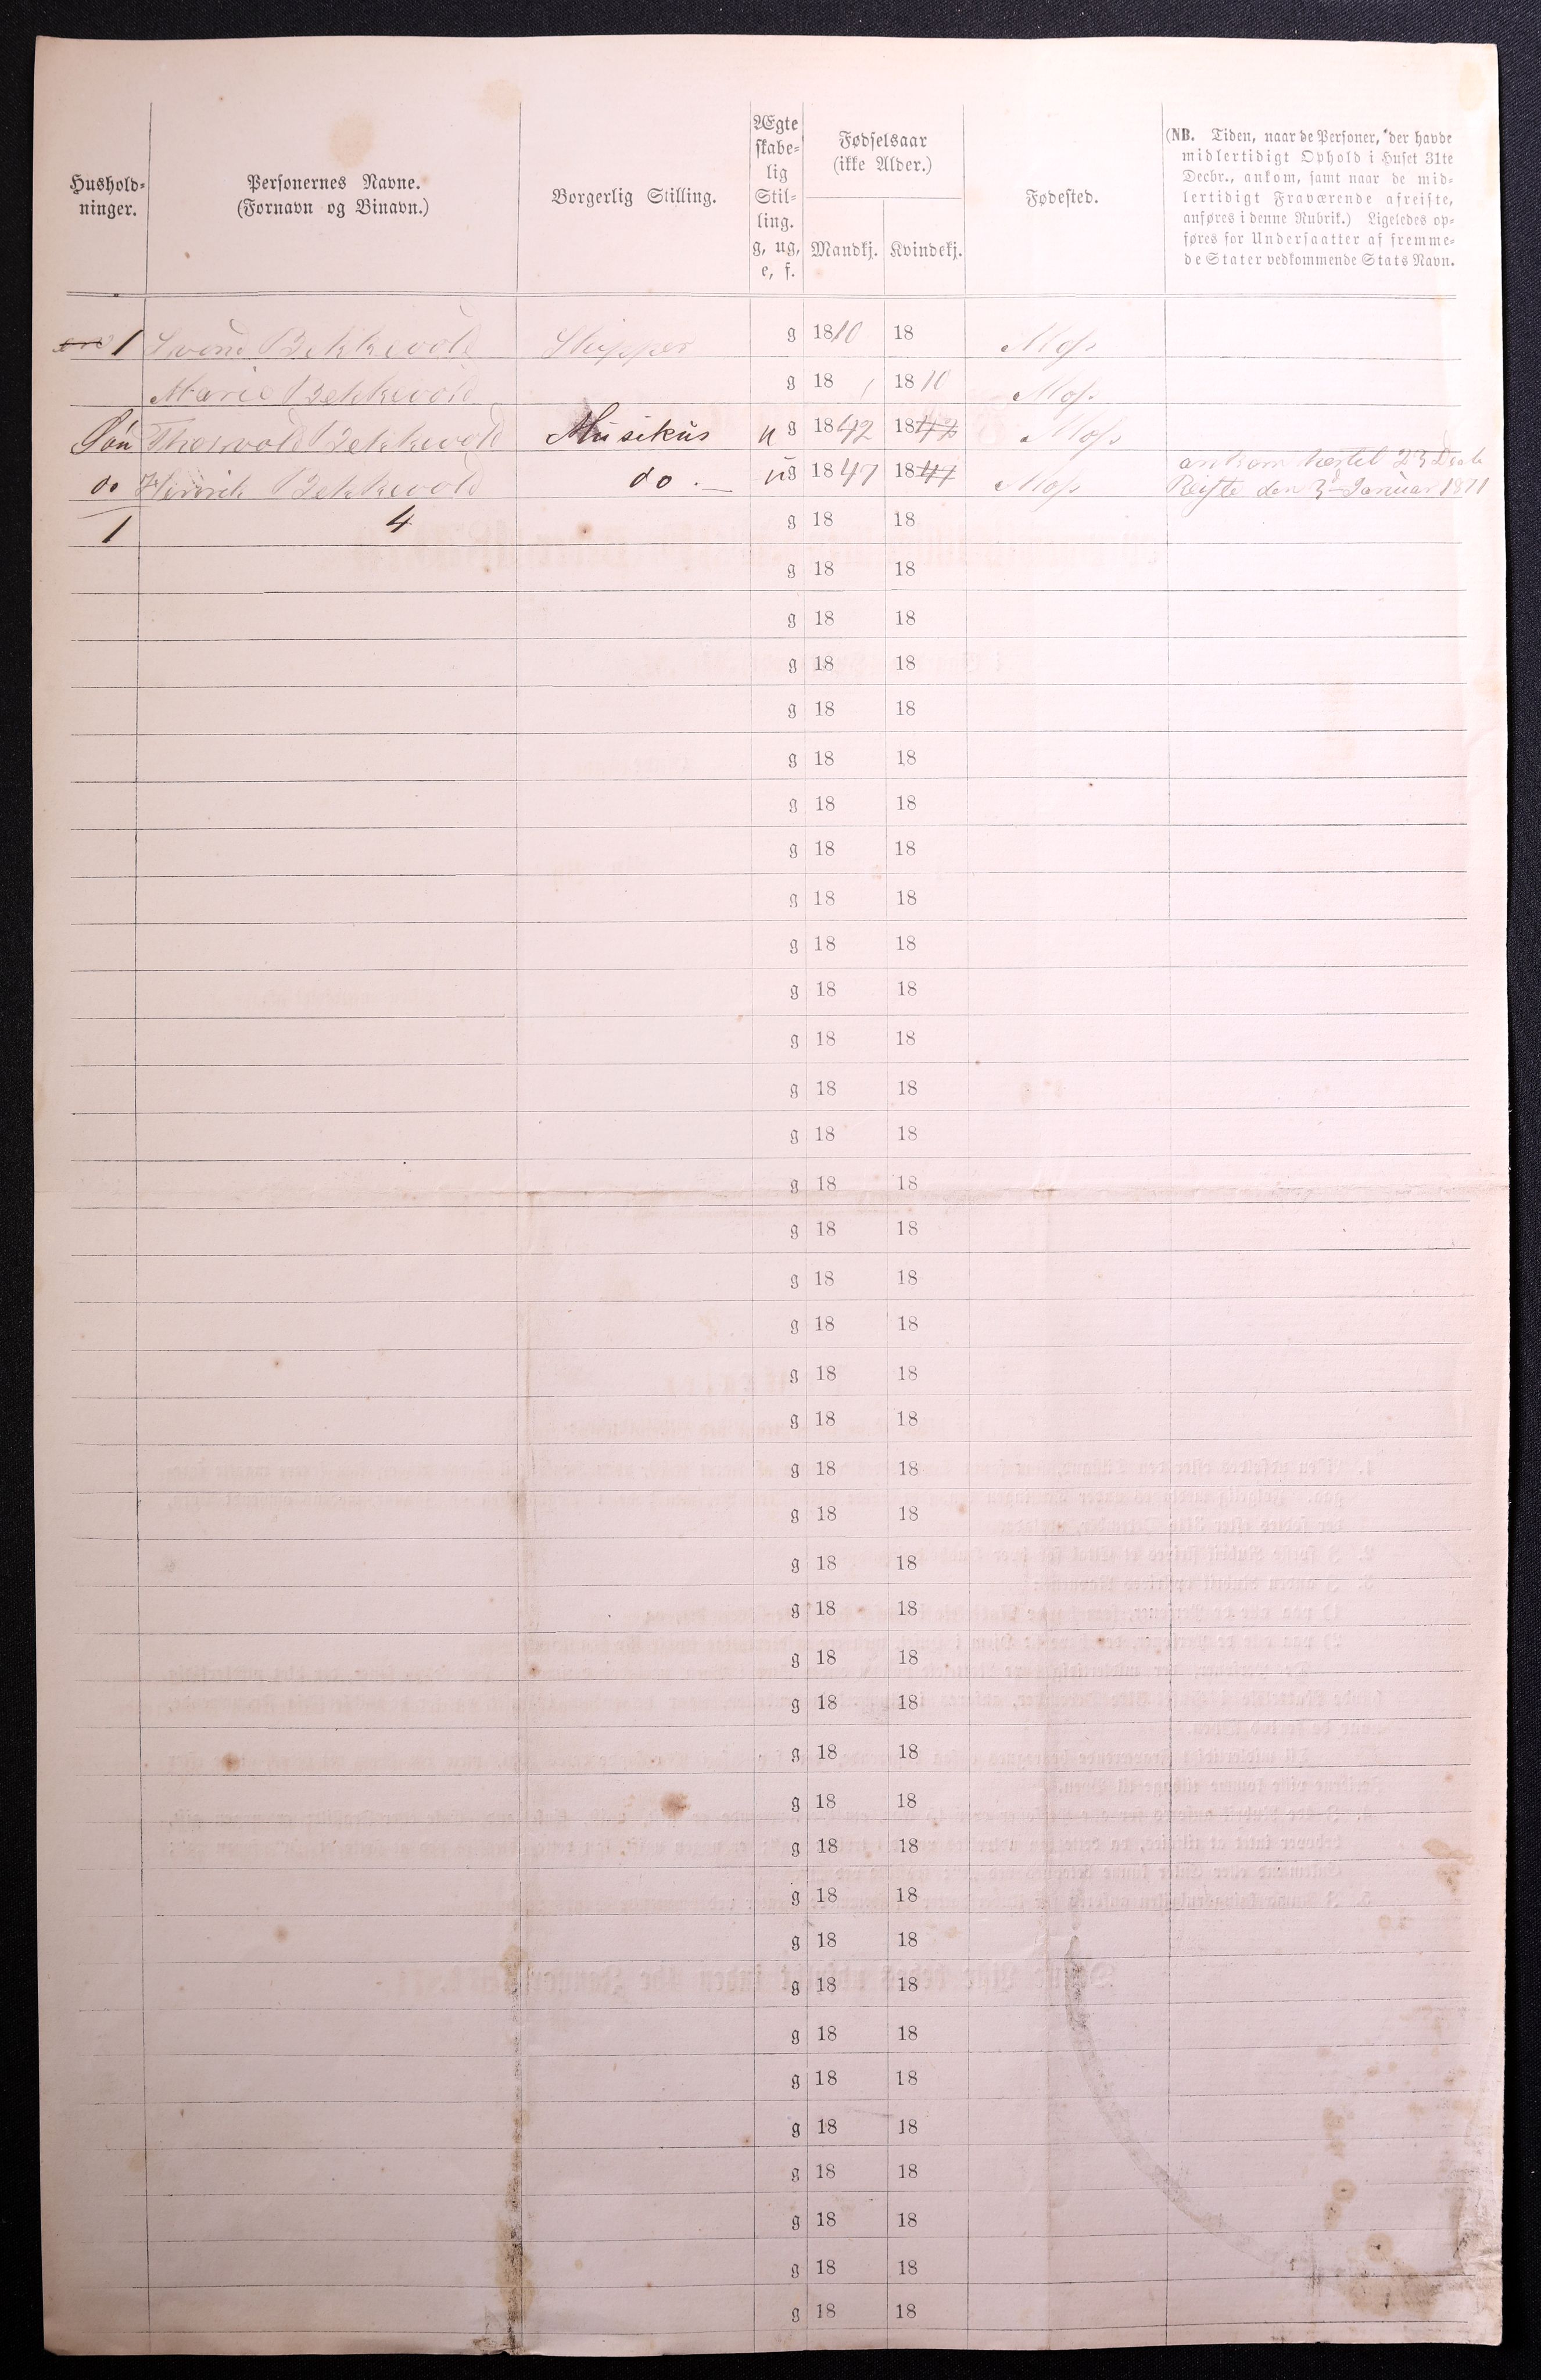 Hushold-
ninger.
Personernes Navne.
(Fornavn og Binavn.)
Borgerlig Stilling.
Ægte
skabe-
lig
Stil-
ling.
g, ug,
e, f.
Fødselsaar
(ikke Alder.)
Mandkj. Kvindekj.
Fødested.
(NB. Tiden, naar de Personer, der havde
midlertidigt Ophold i Huset 31te
Decbr., ankom, samt naar de mid-
lertidigt Fraværende afreiste,
anføres i denne Rubrik.) Ligeledes op-
føres for Undersaatter af fremme-
de Stater vedkommende Stats Navn.
1 Bekkevold Skipper g 1810 18 Moss
Marie Bekkevold g 18 1810 Moss
Søn Thorvold Bekkevold Musikus ug 1842 1842 Moss
do Henrik Bekkevold do ug 1847 1847 Moss ankom hertil 23 Decb
Reiste den 3 Januar 1871
1 4 g 18 18
g 18 18
g 18 18
g 18 18
g 18 18
g 18 18
g 18 18
g 18 18
g 18 18
g 18 18
g 18 18
g 18 18
g 18 18
g 18 18
g 18 18
g 18 18
g 18 18
g 18 18
g 18 18
g 18 18
g 18 18
g 18 18
g 18 18
g 18 18
g 18 18
g 18 18
g 18 18
g 18 18
g 18 18
g 18 18
g 18 18
g 18 18
g 18 18
g 18 18
g 18 18
g 18 18
g 18 18
g 18 18
g 18 18